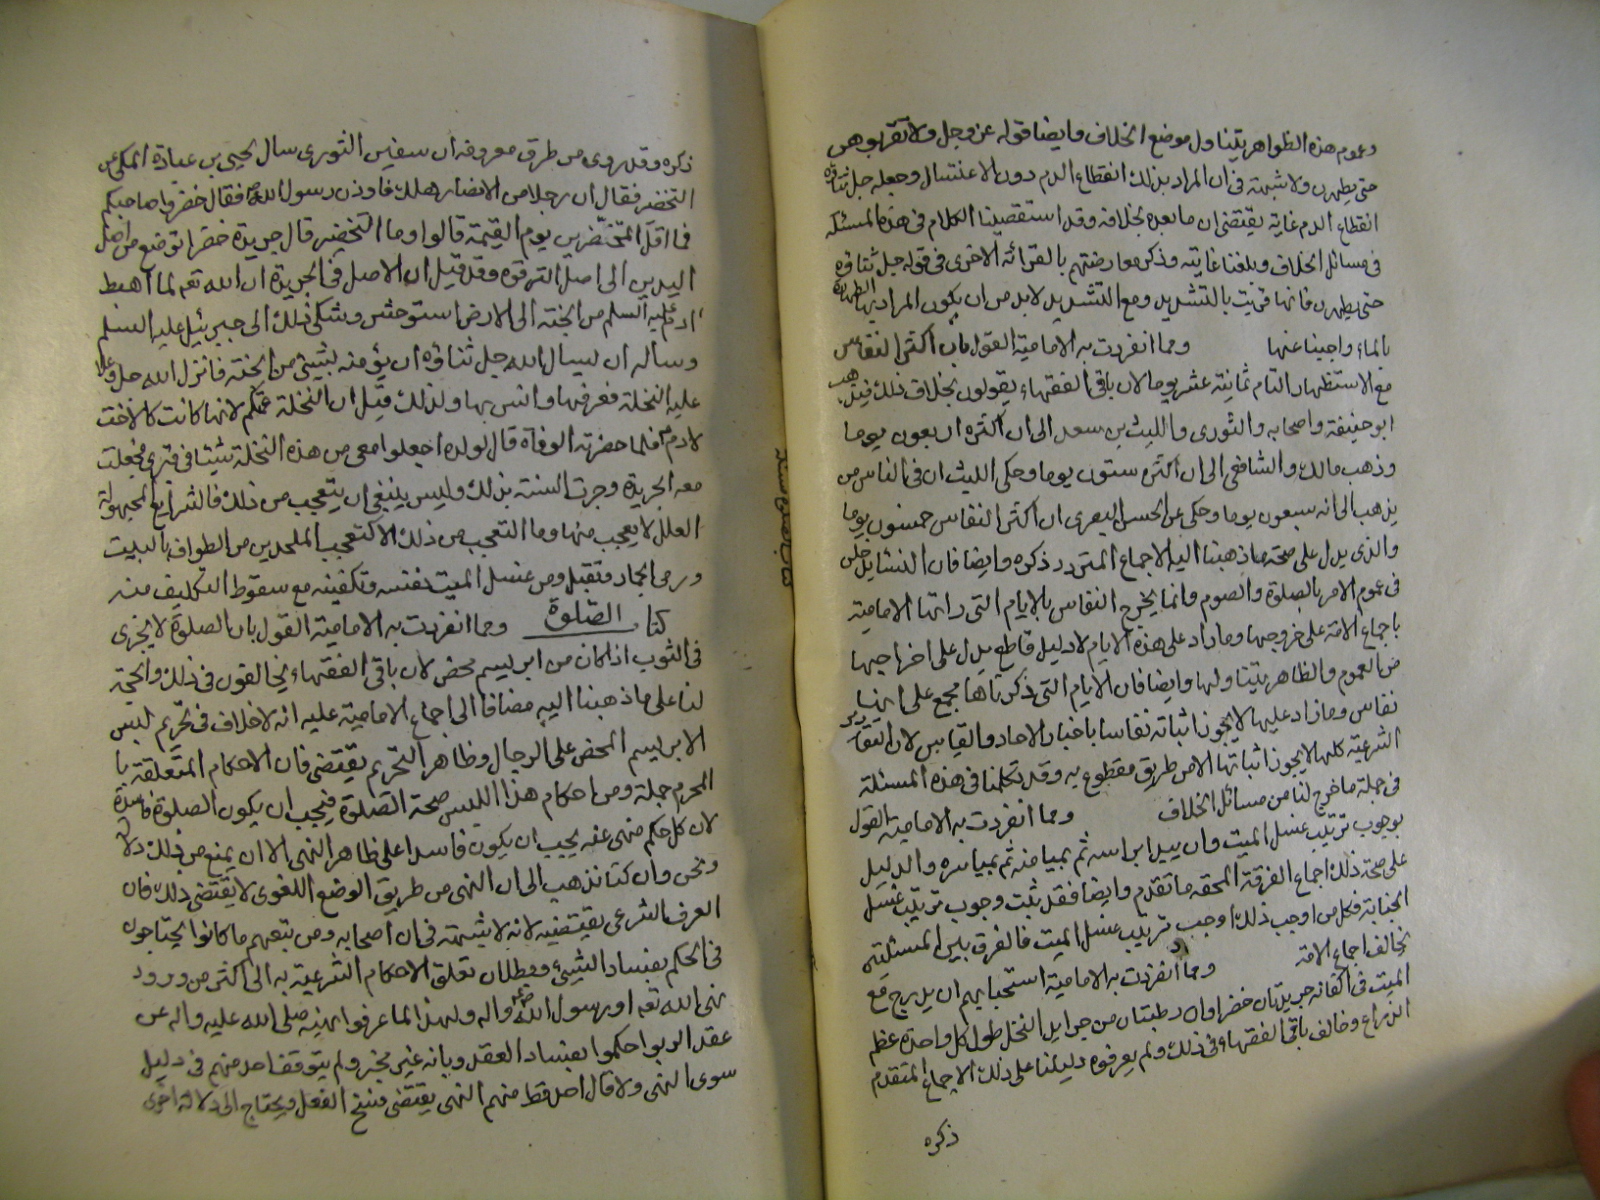 وعموم هذه الظواهر يتناول موضع الخلاف وايضا قوله عز وجل ولا تقربوهن
حتى يطهرن ولا شبهة في ان المراد بذلك انقطاع الدم دون الاغتسال وجعله جل ثناؤه
انقطاع الدم غاية يقتضي ان ما بعده بخلافه وقد استقصينا الكلام في هذه المسئلة
في مسائل الخلاف وبلغنا غايته وذكر معارضتهم بالقرائة الاخرى في قوله جل ثناؤه
حتى يطهرن فانها قرئت بالتشديد ومع التشديد لابد من ان يكون المراد به الطهارة
بالماء واجبنا عنها ومما انفردت به الامامية القول بان اكثر النفاس
مع الاستظهار التام ثمانية عشر يوما لان باقي الفقهاء يقولون بخلاف ذلك فيذهب
ابو حنيفة واصحابه والثورى والليث بن سعد الى ان اكثره اربعون يوما
وذهب مالك والشافعي الى ان اكثره ستون يوما وحكى الليث ان في الناس من
يذهب الى انه سبعون يوما وحكى عن الحسن البصرى ان اكثر النفاس خمسون يوما
والذى يدل على صحة ما ذهبنا اليه الاجماع المتردد ذكره وايضا فان النساء يدخلن
في عموم الامر بالصلوة والصوم وانما يخرج النفاس بالايام التى راتها الامامية
باجماع الامة على خروجها وما زاد على هذه الايام لا دليل قاطع يدل على اخراجها
من العموم والظاهر يتناولها وايضا فان الايام التى ذكرناها مجمع على انها
نفاس وما زاد عليها لا يجوز اثباته نفاسا باخبار الاحاد والقياس لان التقادير
الشرعية كلها لا يجوز اثباتها الا من طريق مقطوع به وقد تكلمنا في هذه المسئلة
في جملة ما خرج لنا من مسائل الخلاف ومما انفردت به الامامية القول
بوجوب ترتيب غسل الميت وان يبدا براسه ثم بميامنه ثم بمياسره والدليل
على صحة ذلك اجماع الفرقة المحقه ما تقدم وايضا فقد ثبت وجوب ترتيب غسل
الجنابة فكل من اوجب ذلك اوجب ترتيب غسل الميت فالفرق بين المسئلتين
يخالف اجماع الامة ومما انفردت به الامامية استحبابهم ان يدرج مع
الميت في اكفانه جريدتان خضراوان رطبتان من جرايد النخل طول كل واحدة عظم
الذراع وخالف باقي الفقهاء في ذلك ولم يعرفوه دليلنا على ذلك الاجماع المتقدم
ذكره
ذكره وقد روى من طرق معروفه ان سفين الثورى سال يحيى بن عبادة المكي عن
التخضير فقال ان رجلا من الانصار هلك فاوذن رسول الله فقال خضروا صاحبكم
فما اقل المتخضرين يوم القيمة قالوا وما التخضير قال جريدة خضراء توضع من اصل
اليدين الى اصل الترقوة وقد قيل ان الاصل في الجريدة ان الله تعه لما اهبط
ادم عليه السلم من الجنة الى الارض استوحش وشكى ذلك الى جبرئيل عليه السلم
وساله ان ليسال الله جل ثناؤه ان يؤمنه بشيئ من الجنة فانزل الله جل وعلا
عليه النخلة فعرفها وانس بها ولذلك قيل ان النخلة عمتكم لانها كانت كالاخت
لادم فلما حضرته الوفاة قال لولده اجعلوا معى من هذه النخلة شيئا في قبرى فجعلت
معه الجريدة وجرت السنة بذلك وليس ينبغى ان يتعجب من ذلك فالشرايع المجهولة
العلل لا يعجب منها وما التعجب من ذلك الا كتعجب الملحدين من الطواف بالبيت
ورمى الجمار وتقبيل ومن غسل الميت نفسه وتكفينه مع سقوط التكليف منه
كتاب الصلوة ومما انفردت به الامامية القول بان الصلوة لا يجزى
في الثوب اذا كان من ابريسم محض لان باقي الفقهاء يخالفون في ذلك والحجة
لنا على ما ذهبنا اليه مضافا الى اجماع الامامية عليه انه لا خلاف في تحريم لبس
الابريسم المحض على الرجال وظاهر التحريم يقتضى فان الاحكام المتعلقة با
المحرم جملة ومن احكام هذا اللبس صحة الصلوة فيجب ان يكون الصلوة فاسدة
لان كل حكم منهى عنه يجب ان يكون فاسدا على ظاهر النهى الا ان يمنع من ذلك دلالة
ونحن وان كنا نذهب الى ان النهى من طريق الوضع اللغوى لا يقتضى ذلك فان
العرف الشرعى يقتضيه لانه لا شبهة في ان اصحابه ومن تبعهم ما كانوا يحتاجون
في الحكم بفساد الشيئ وبطلان تعلق الاحكام الشرعية به الى اكثر من ورود
نهى الله تعه او رسول الله واله ولهذا لما عرفوا نهيه صلى الله عليه واله عن
عقد الربوا حكموا بفساد العقد وبانه غير مجز ولم يتوقف احد منهم في دليل
سوى النهى ولا قال احد قط منهم النهى يقتضى فسخ الفعل ويحتاج الى دلالة اخرى